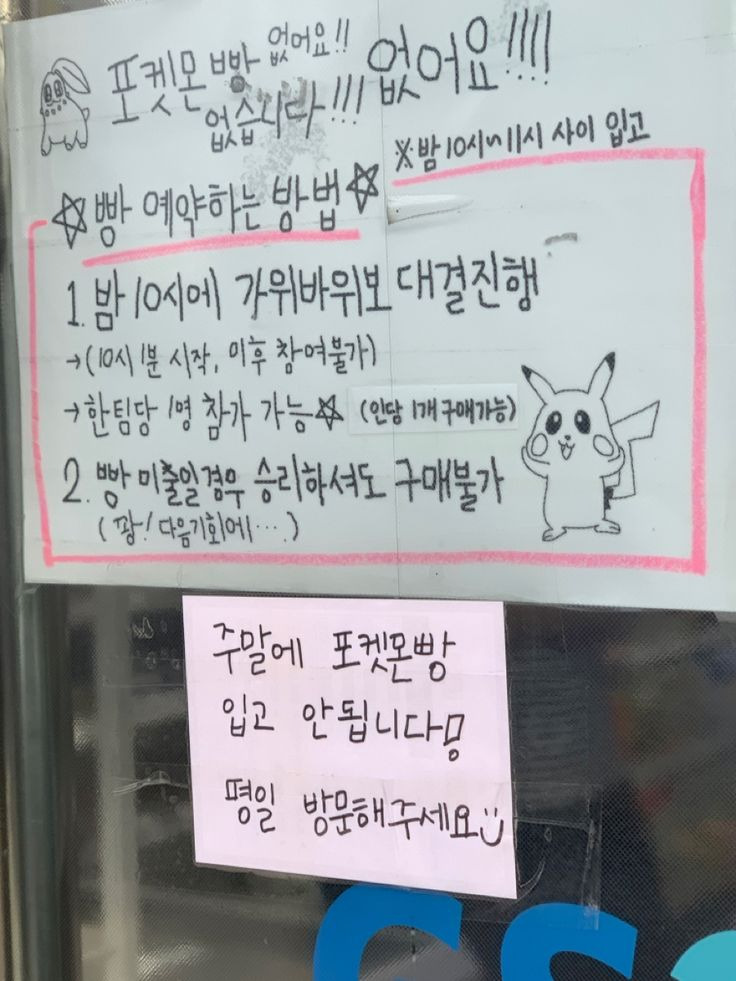 포켓몬 빵 없어요!! 없어요!!!!
없습니다!!!
※밤 10시~11시 사이 입고
☆빵 예약하는 방법☆
1. 밤 10시에 가위바위보 대결진행
→(10시 1분 시작, 이후 참여불가)
→한팀당 1명 참가 가능☆ (인당 1개 구매가능)
2. 빵 미출일경우 승리하셔도 구매불가
(꽝! 다음기회에...)
주말에 포켓몬빵
입고 안됩니다
평일 방문해주세요
GS